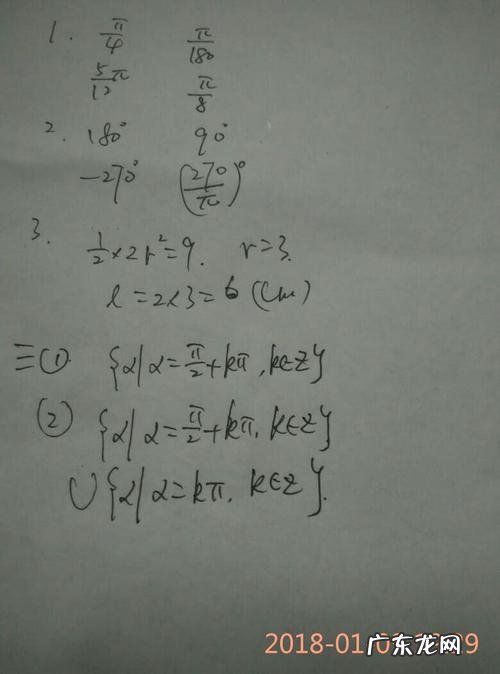 1. π/4 π/180
5/12 π π/8
2. 180° 90°
-270° (270/π)°
3.
1/2 × 2r²=9. r=3.
l=2×3=6 (cm)
三① {α|α=π/2+kπ, k∈Z}
② {α|α=π/2+kπ, k∈Z}
∪{α|α=kπ, k∈Z}.
2018-01
广东龙网